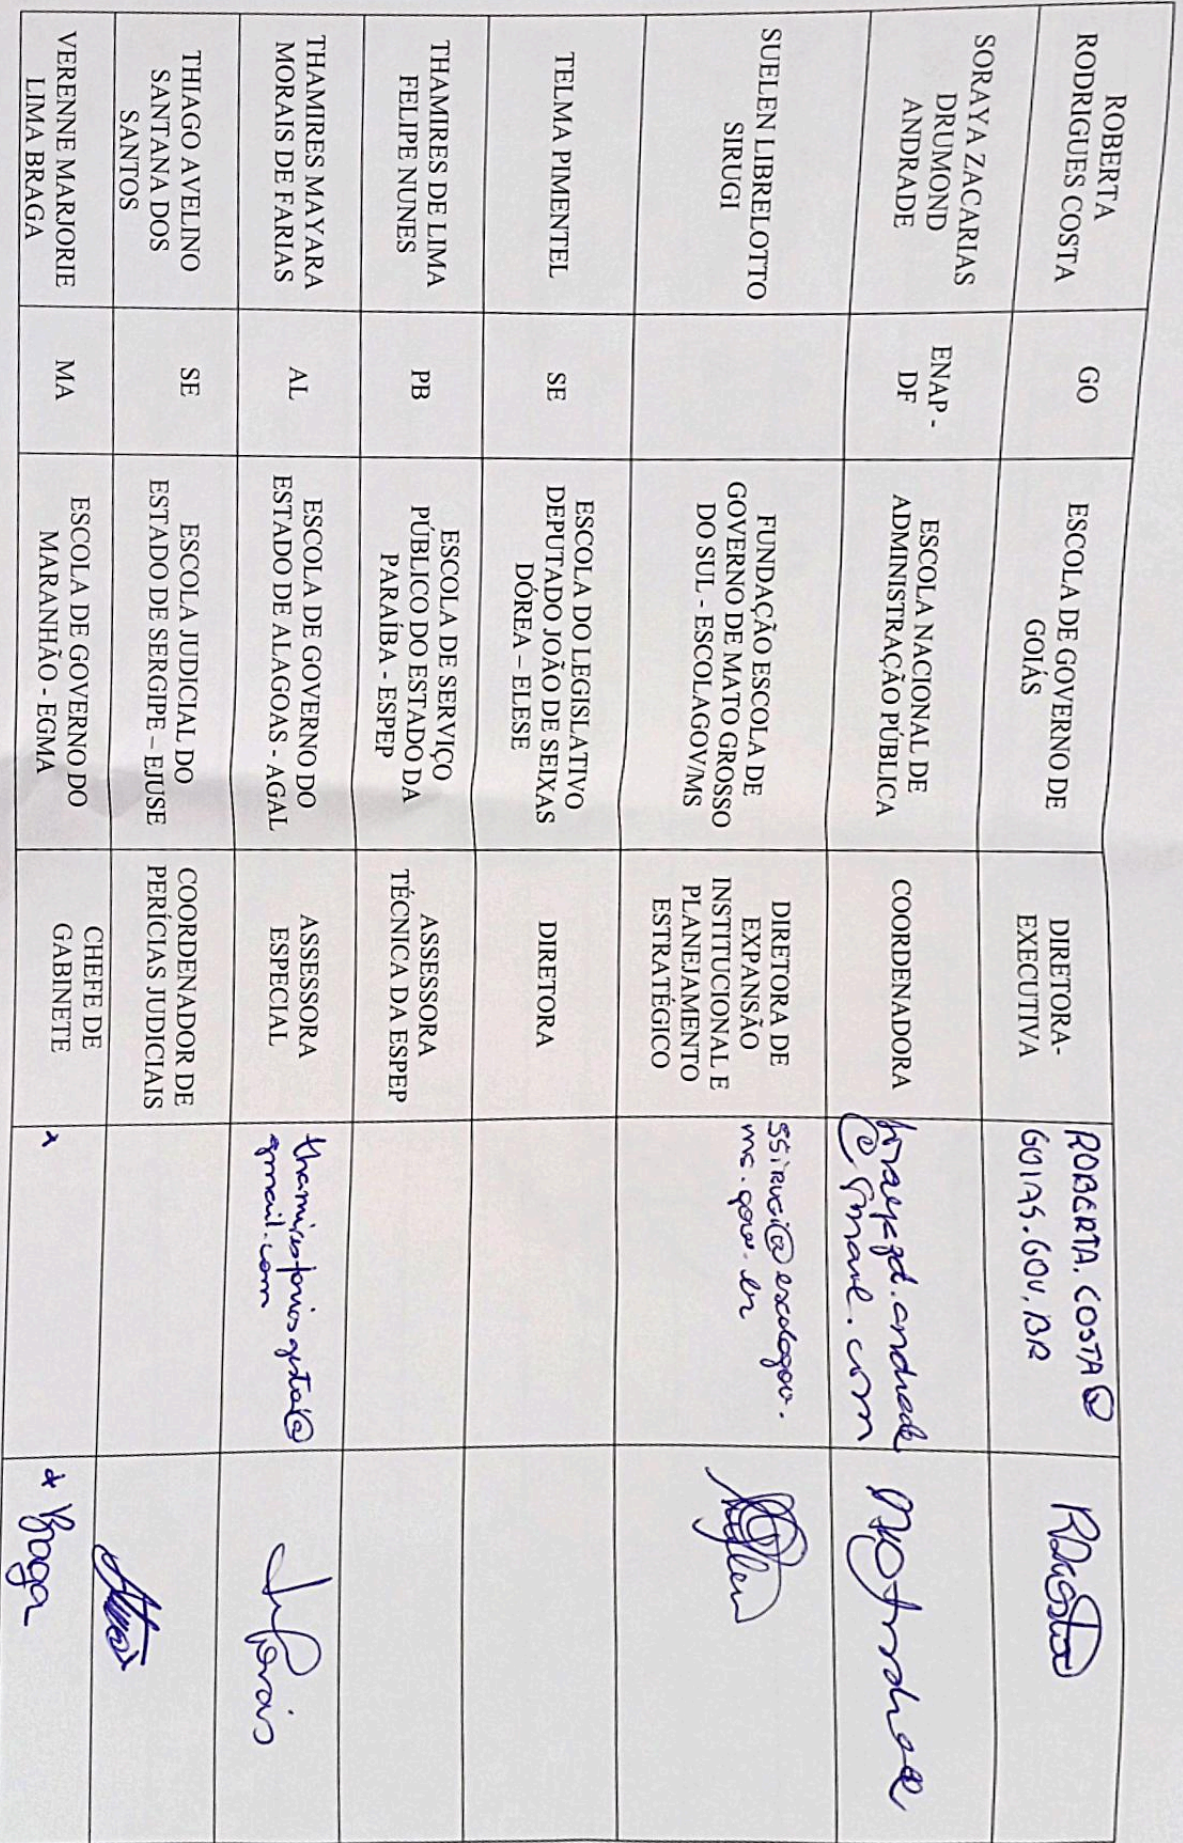 ROBERTA
RODRIGUES COSTA
GO
ESCOLA DE GOVERNO DE
GOIÁS
DIRETORA-
EXECUTIVA
ROBERTA.COSTA@
GOIAS.GOV.BR
SORAYA ZACARIAS
DRUMOND
ANDRADE
ENAP -
DF
ESCOLA NACIONAL DE
ADMINISTRAÇÃO PÚBLICA
COORDENADORA
@gmail.com
SUELEN LIBRELOTTO
SIRUGI
FUNDAÇÃO ESCOLA DE
GOVERNO DE MATO GROSSO
DO SUL - ESCOLAGOV/MS
DIRETORA DE
EXPANSÃO
INSTITUCIONAL E
PLANEJAMENTO
ESTRATÉGICO
ssirugi@escolagov.
ms.gov.br
TELMA PIMENTEL
SE
ESCOLA DO LEGISLATIVO
DEPUTADO JOÃO DE SEIXAS
DÓREA – ELESE
DIRETORA
THAMIRES DE LIMA
FELIPE NUNES
PB
ESCOLA DE SERVIÇO
PÚBLICO DO ESTADO DA
PARAÍBA - ESPEP
ASSESSORA
TÉCNICA DA ESPEP
THAMIRES MAYARA
MORAIS DE FARIAS
AL
ESCOLA DE GOVERNO DO
ESTADO DE ALAGOAS - AGAL
ASSESSORA
ESPECIAL
gmail.com
THIAGO AVELINO
SANTANA DOS
SANTOS
SE
ESCOLA JUDICIAL DO
ESTADO DE SERGIPE – EJUSE
COORDENADOR DE
PERÍCIAS JUDICIAIS
VERENNE MARJORIE
LIMA BRAGA
MA
ESCOLA DE GOVERNO DO
MARANHÃO - EGMA
CHEFE DE
GABINETE
x
x Braga